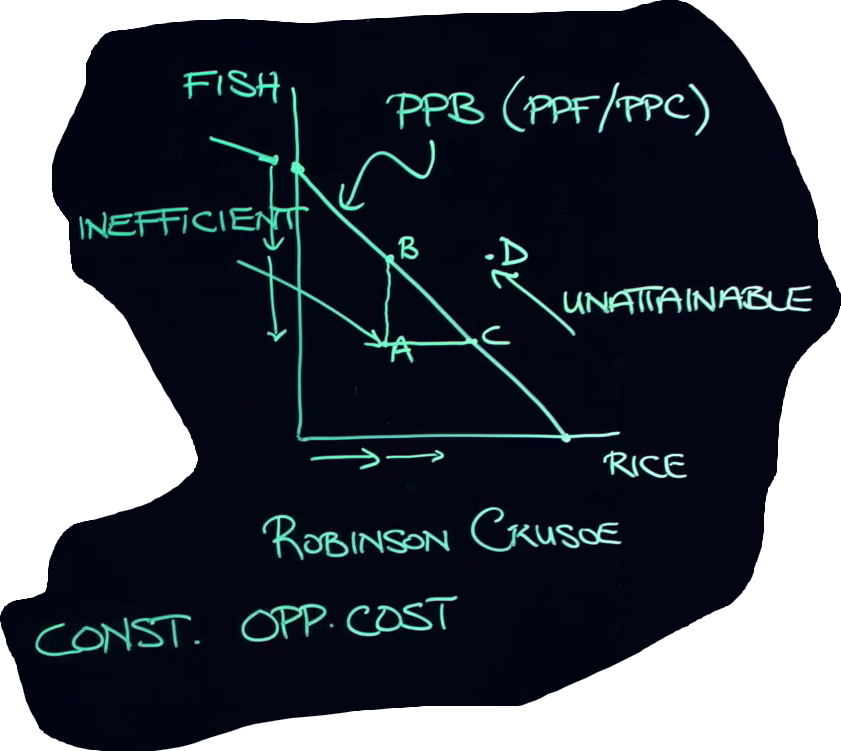 FISH
PPB (PPF/PPC)
INEFFICIENT
B
.D
UNATTAINABLE
A
C
RICE
ROBINSON CRUSOE
CONST. OPP. COST